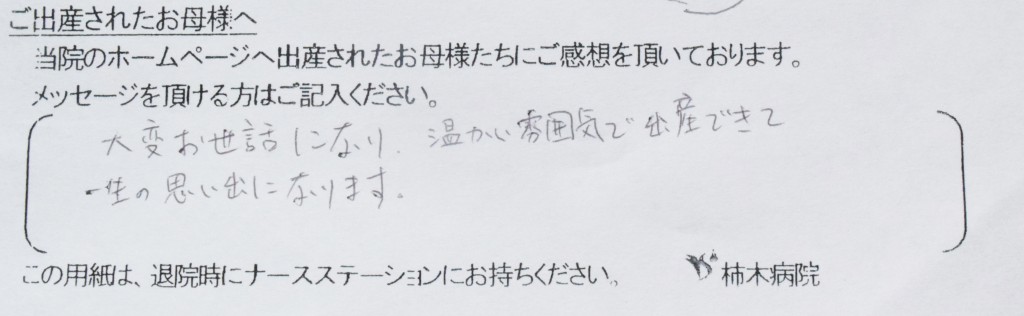 ご出産されたお母様へ
当院のホームページへ出産されたお母様たちにご感想を頂いております。
メッセージを頂ける方はご記入ください。
大変お世話になり、温かい雰囲気で出産できて
一生の思い出になります。
この用紙は、退院時にナースステーションにお持ちください。
柿木病院